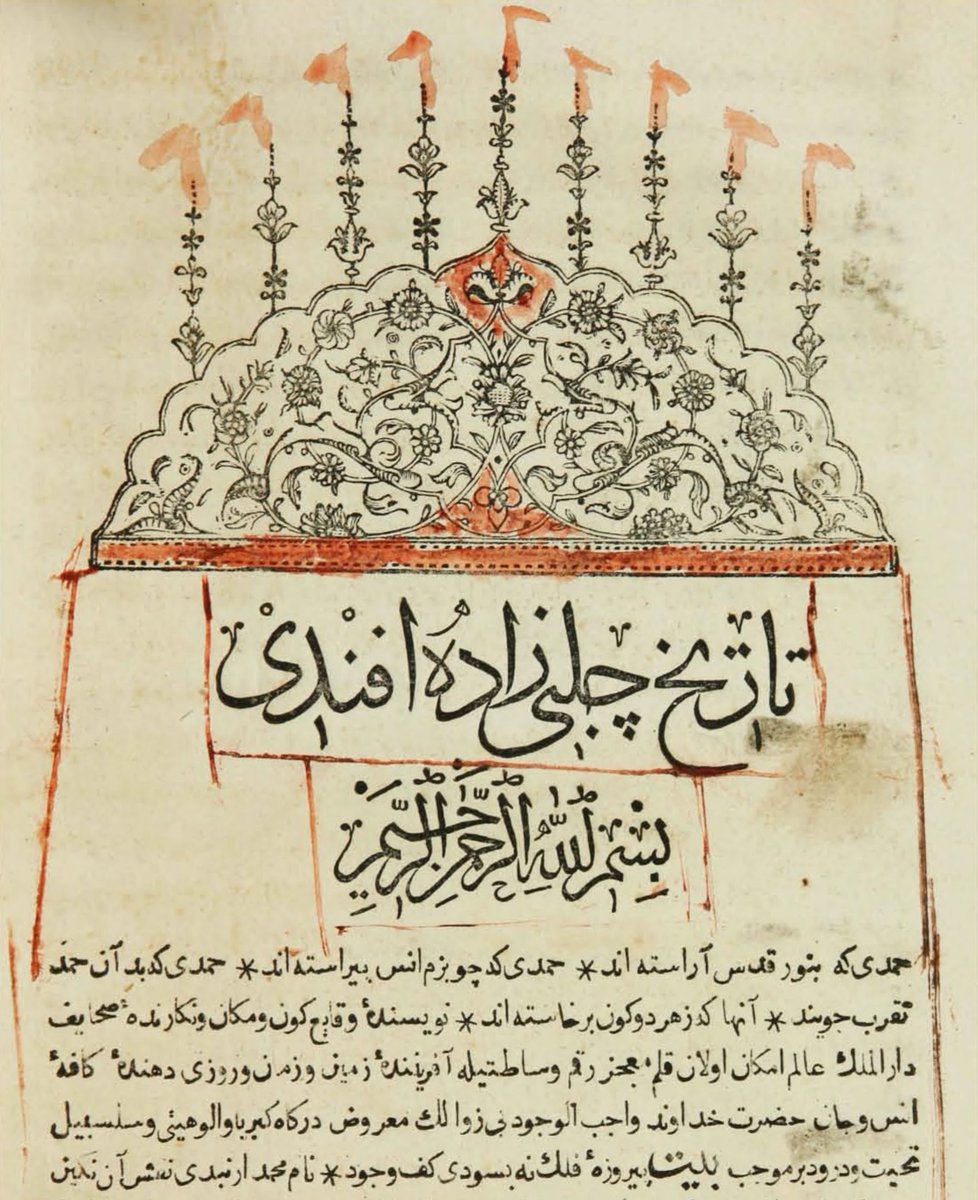 تاريخ چلبى زاده افندى
بسم الله الرحمن الرحيم
حمدى كه بنور قدس آراسته اند * حمدى كه چو بزم انس پيراسته اند * حمدى كه بدان حمد
تقرب جويند * آنها كه زهر دو كون برخاسته اند * نويسندۀ وقايع كون ومكان ونكارندهٔ صحايف
دار الملك عالم امكان اولان قلم معجز رقم وساطتيله آفرينندهٔ زمين وزمن وروزى دهندهٔ كافهٔ
انس وجان حضرت خداوند واجب الوجود بى زوالك معروض دركاه كبريا والوهيتى وسلسبيل
تحيت ودرود بر موجب بيت پيروزهٔ فلك نه بسودى كف وجود * نام محمد ار نبدى نقش آن نكين